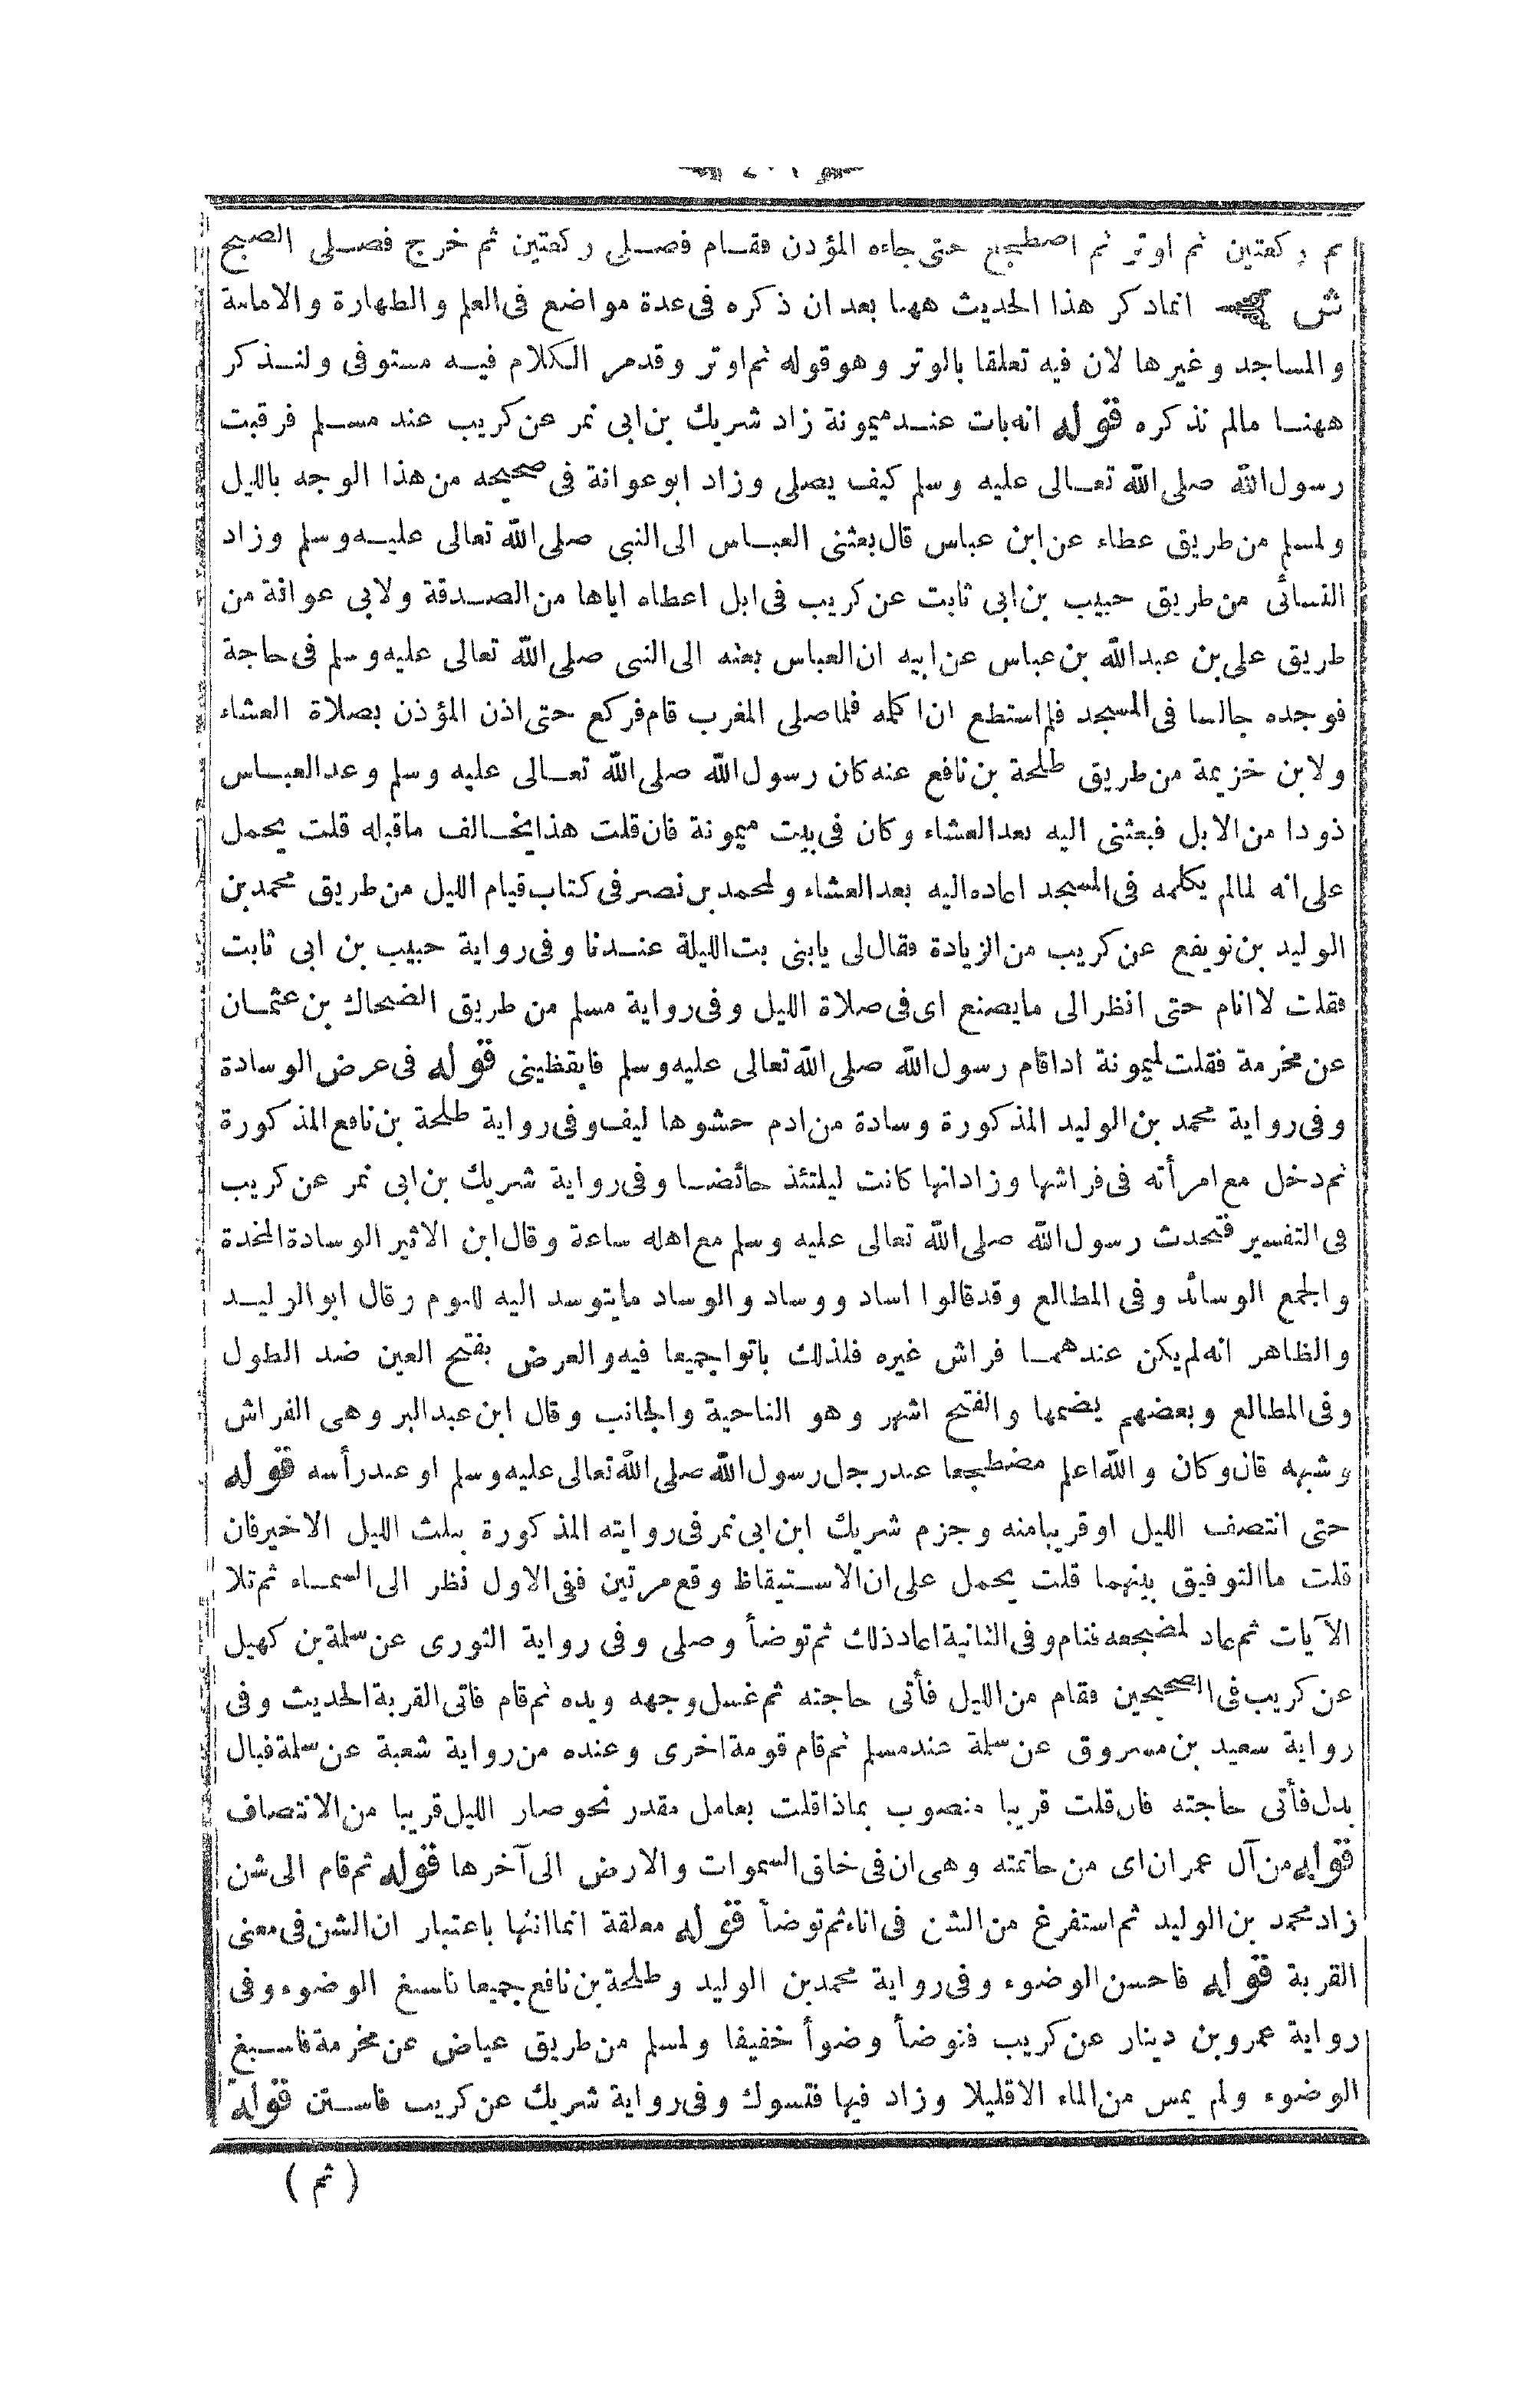 ثم ركعتين ثم اوتر ثم اضطجع حتى جاءه المؤذن فقام فصلى ركعتين ثم خرج فصلى الصبح
ش انما ذكر هذا الحديث ههنا بعد ان ذكره فى عدة مواضع فى العلم والطهارة والامامة
والمساجد وغيرها لان فيه تعلقا بالوتر وهو قوله ثم اوتر وقد مر الكلام فيه مستوفى ولنذكر
ههنا مالم نذكره قوله انه بات عند ميمونة زاد شريك بن ابى نمر عن كريب عند مسلم فرقبت
رسول الله صلى الله تعالى عليه وسلم كيف يصلى وزاد ابو عوانة فى صحيحه من هذا الوجه بالليل
ولمسلم من طريق عطاء عن ابن عباس قال بعثنى العباس الى النبى صلى الله تعالى عليه وسلم وزاد
النسائى من طريق حبيب بن ابى ثابت عن كريب فى ابل اعطاه اياها من الصدقة ولابى عوانة من
طريق على بن عبد الله بن عباس عن ابيه ان العباس بعثه الى النبى صلى الله تعالى عليه وسلم فى حاجة
فوجده جالسا فى المسجد فلم استطع ان اكلمه فلما صلى المغرب قام فركع حتى اذن المؤذن بصلاة العشاء
ولابن خزيمة من طريق طلحة بن نافع عنه كان رسول الله صلى الله تعالى عليه وسلم وعد العباس
ذودا من الابل فبعثنى اليه بعد العشاء وكان فى بيت ميمونة فان قلت هذا يخالف ماقبله قلت يحمل
على انه لمالم يكلمه فى المسجد اعاده اليه بعد العشاء ولمحمد بن نصر فى كتاب قيام الليل من طريق محمد بن
الوليد بن نويفع عن كريب من الزيادة فقال لى يابنى بت الليلة عندنا وفى رواية حبيب بن ابى ثابت
فقلت لا انام حتى انظر الى مايصنع اى فى صلاة الليل وفى رواية مسلم من طريق الضحاك بن عثمان
عن مخرمة فقلت لميمونة اذا قام رسول الله صلى الله تعالى عليه وسلم فايقظينى قوله فى عرض الوسادة
وفى رواية محمد بن الوليد المذكورة وسادة من ادم حشوها ليف وفى رواية طلحة بن نافع المذكورة
ثم دخل مع امرأته فى فراشها وزاد انها كانت ليلتئذ حائضا وفى رواية شريك بن ابى نمر عن كريب
فى التفسير فتحدث رسول الله صلى الله تعالى عليه وسلم مع اهله ساعة وقال ابن الاثير الوسادة المخدة
والجمع الوسائد وفى المطالع وقد قالوا اساد ووساد والوساد مايتوسد اليه للنوم وقال ابو الوليد
والظاهر انه لم يكن عندهما فراش غيره فلذلك باتوا جميعا فيه والعرض بفتح العين ضد الطول
وفى المطالع وبعضهم يضمها والفتح اشهر وهو الناحية والجانب وقال ابن عبد البر وهى الفراش
وشبهه قال وكان والله اعلم مضطجعا عند رجل رسول الله صلى الله تعالى عليه وسلم او عند رأسه قوله
حتى انتصف الليل او قريبا منه وجزم شريك ابن ابى نمر فى روايته المذكورة بثلث الليل الاخير فان
قلت ما التوفيق بينهما قلت يحمل على ان الاستيقاظ وقع مرتين ففى الاول نظر الى السماء ثم تلا
الآيات ثم عاد لمضجعه فنام وفى الثانية اعاد ذلك ثم توضأ وصلى وفى رواية الثورى عن سلمة بن كهيل
عن كريب فى الصحيحين فقام من الليل فأتى حاجته ثم غسل وجهه ويده ثم قام فاتى القربة الحديث وفى
رواية سعيد بن مسروق عن سلمة عند مسلم ثم قام قومة اخرى وعنده من رواية شعبة عن سلمة فبال
بدل فأتى حاجته فان قلت قريبا منصوب بماذا قلت بعامل مقدر نحو صار الليل قريبا من الانتصاف
قوله من آل عمران اى من خاتمته وهى ان فى خلق السموات والارض الى آخرها قوله ثم قام الى شن
زاد محمد بن الوليد ثم استفرغ من الشن فى اناء ثم توضأ قوله معلقة انما انثها باعتبار ان الشن فى معنى
القربة قوله فاحسن الوضوء وفى رواية محمد بن الوليد وطلحة بن نافع جميعا فاسبغ الوضوء وفى
رواية عمرو بن دينار عن كريب فتوضأ وضوأ خفيفا ولمسلم من طريق عياض عن مخرمة فاسبغ
الوضوء ولم يمس من الماء الا قليلا وزاد فيها فتسوك وفى رواية شريك عن كريب فاستن قوله
( ثم )